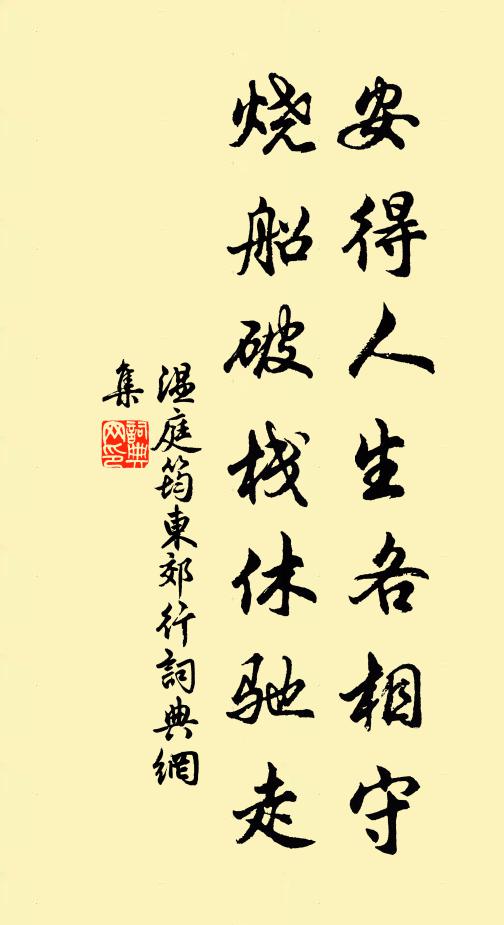 安得人生各相守
烧船破栈休驰走
温庭筠東郊行詞典網
集
詞典
网印